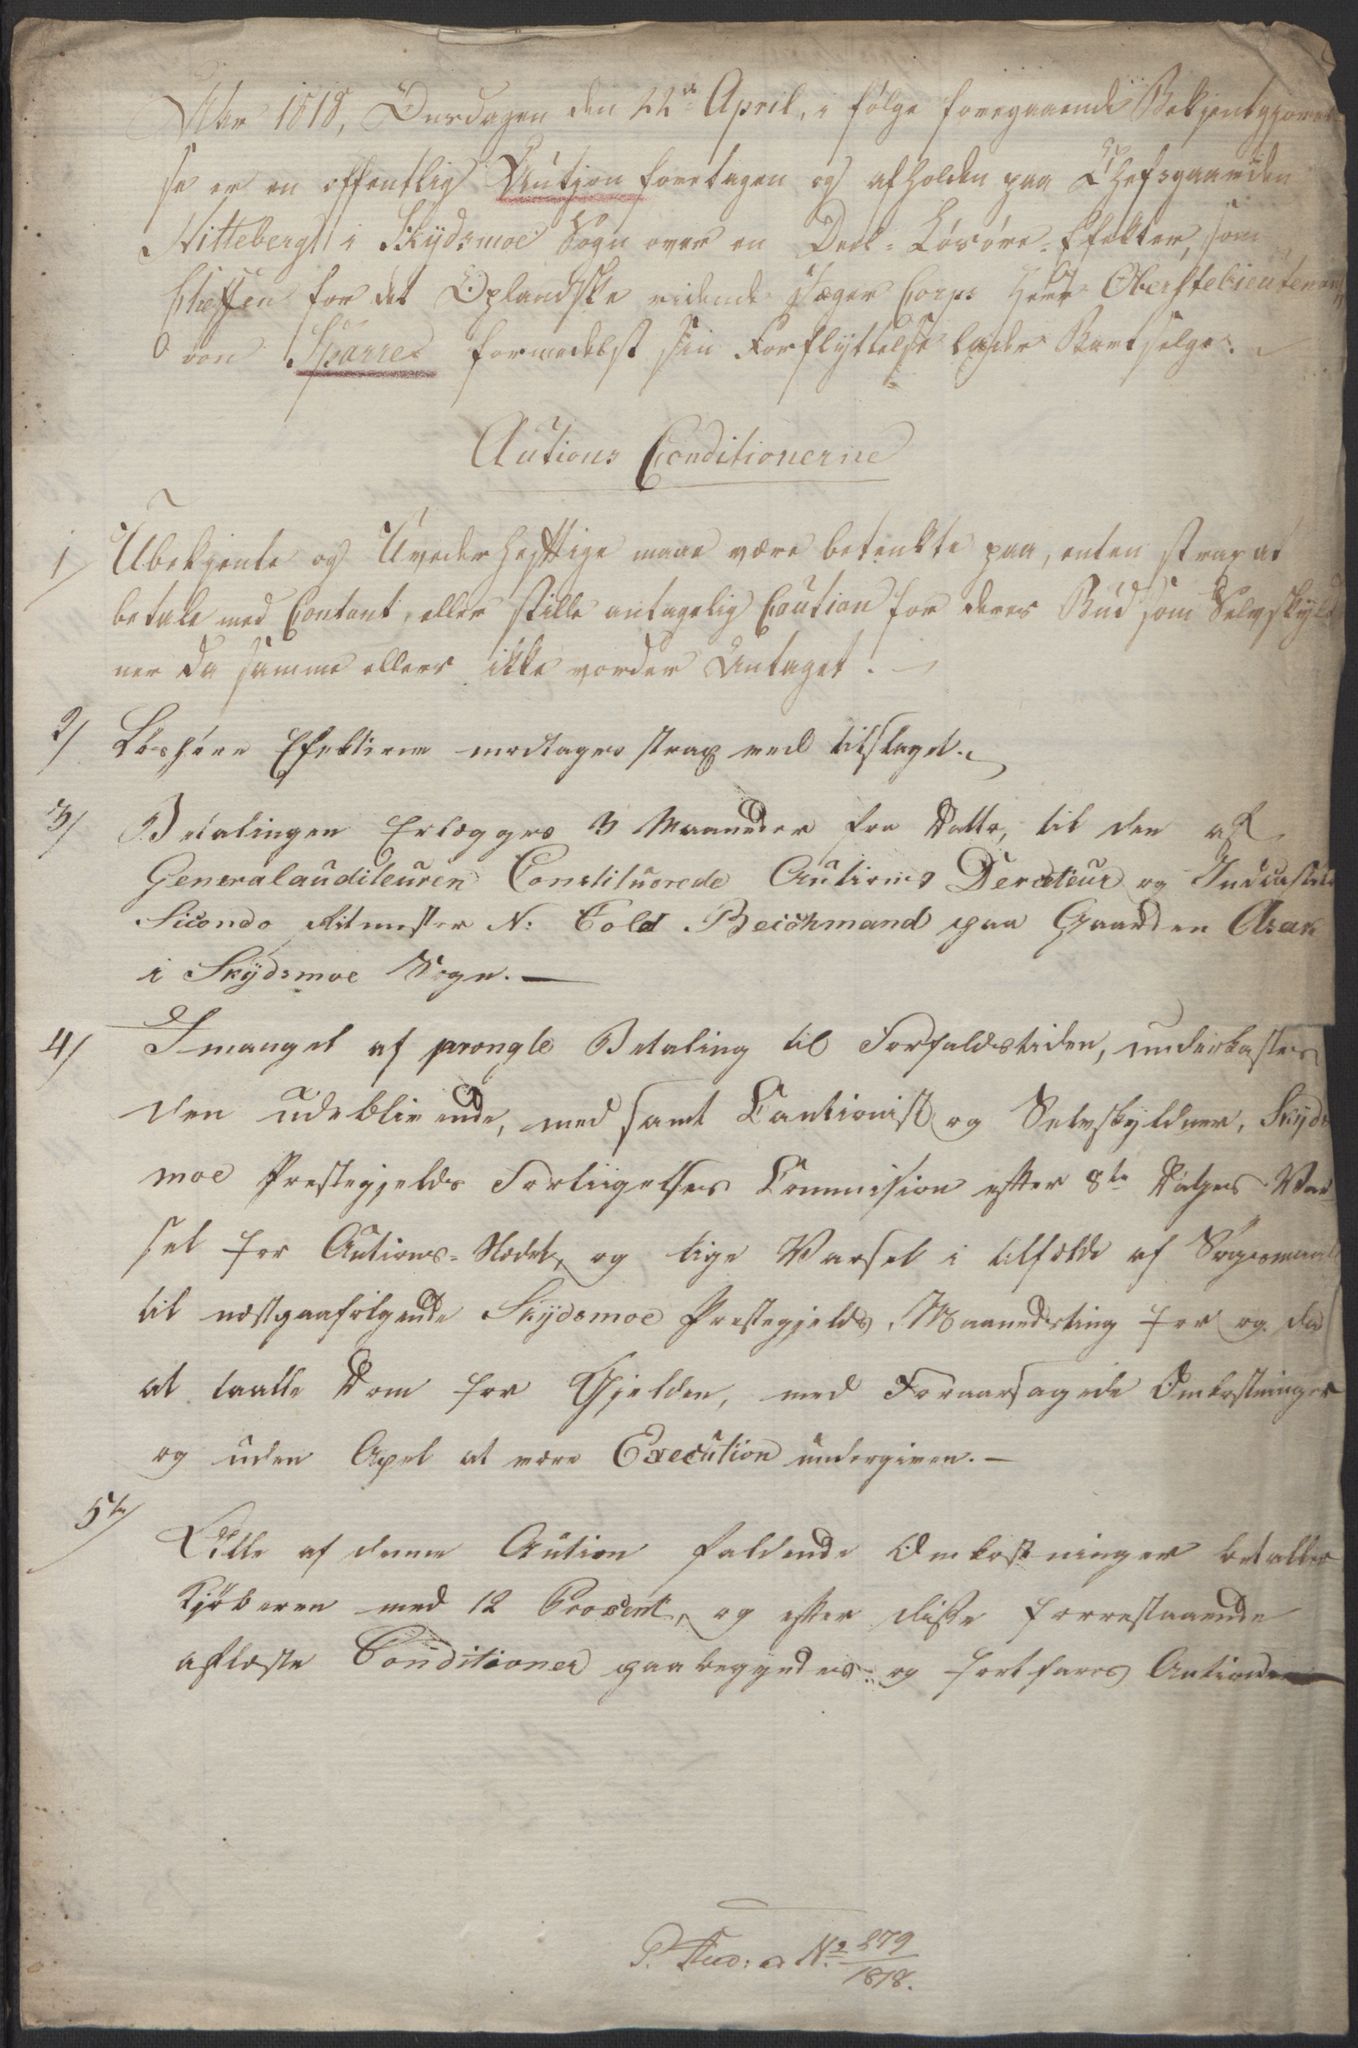 Aar 1818, Onsdagen den 22de April, i følge foregaaende Bekjentgjørel-
se er en offentlig Auction foretagen og afholden paa Chefsgaarden
Nitteberg i Skydsmoe Sogn over en Deel Løsøre-Efekter, som
Cheffen for det Oplandske ridende Jæger Corps Herr Oberstelieutenant
von Sparre formedelst sin Forflyttelse lader Bortselge.
Autions Conditionerne
1/ Ubekjente og Uvederheftige maae være betenkte paa, enten strax at
betale med Contant, eller stille antagelig Coution for deres Bud som Selvskyld
ner da samme ellers ikke vorder Antaget.
2/ Løshøre Efekterne modtages strax ved tilslaget.
3/ Betalingen Erlægges 3 Maaneder fra Datto, til den af
Generalauditeuren Constituerede Autions Derecteur og
Secondo Ritmester N: Told Beichmand paa Gaarden Asak
i Skydsmoe Sogn. —
4/ I mangel af promte Betaling til Forfaldstiden, underkastes
den udeblivende, med samt Cautionist og Selvskyldner, Skyds
moe Prestegjelds Forliigelses Commission efter 8te Dages Var
sel for Autions-Stedet, og lige Varsel i tilfælde af Søgsmaal
til næstpaafølgende Skydsmoe Prestegjelds Maanedsting for og da
at taalle Dom for Gjelden, med Foraarsagede Omkostninger
og uden Apel at være Execution undergiven. —
5te/ Alle af denne Aution faldende Omkostninger betaller
Kjøberen med 12 Procent, og efter disse forrestaaende
afleste Conditioner paabegyndes og fortfares Autionen
No 279
1818.